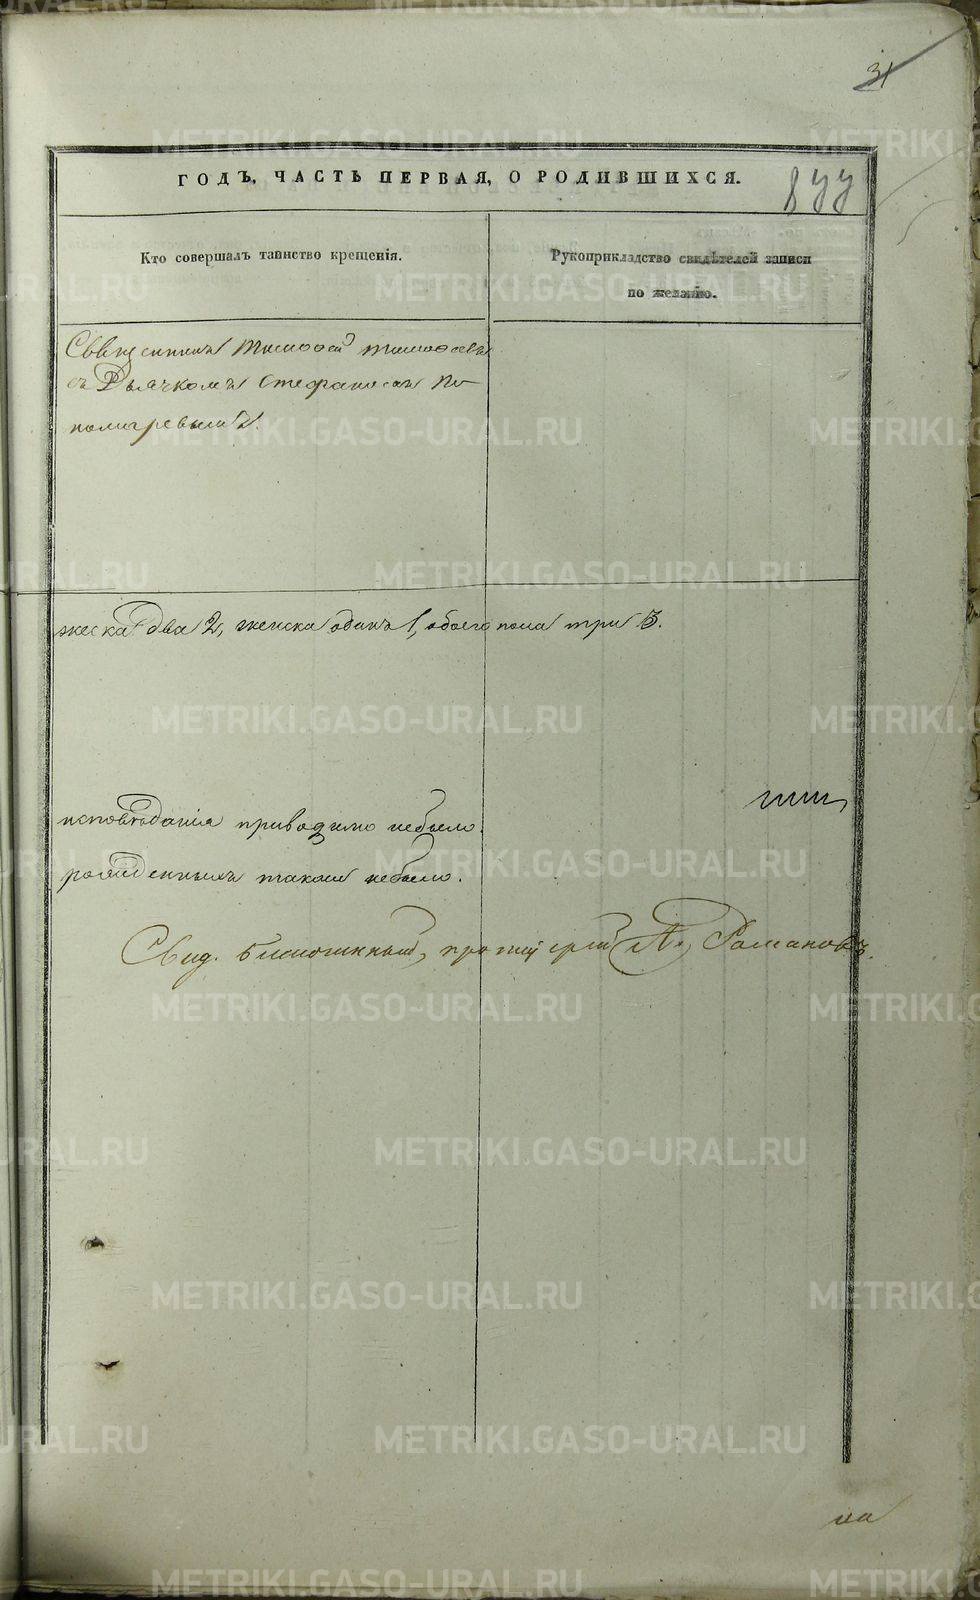 31
ГОДЪ, ЧАСТЬ ПЕРВАЯ, О РОДИВШИХСЯ.
877
Кто совершалъ таинство крещенія.
Рукоприкладство свидѣтелей записи
по желанію.
Священникъ Тимофей
съ Дьячкомъ Стефаномъ По-
номаревымъ.
жеска два 2, женска одинъ 1, обоего пола три 3.
исповѣданія приводимо небыло.
рожденныхъ также небыло.
Свид. благочинный, протоіерей А. Романовъ.
на
METRIKI.GASO-URAL.RU